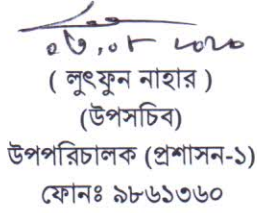 ০৬.০৮ ২০২০
( লুৎফুন নাহার )
(উপসচিব)
উপপরিচালক (প্রশাসন-১)
ফোনঃ ৯৮৬১৩৬০